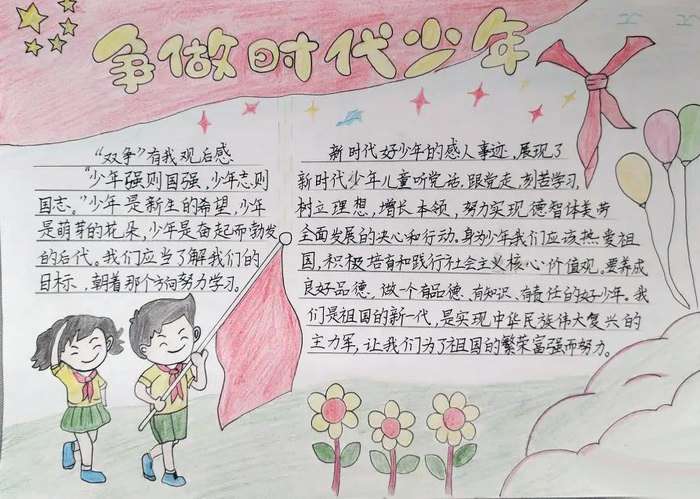 争做时代少年
“双争”有我观后感
“少年强则国强，少年志则
国志。”少年是新生的希望，少年
是萌芽的花朵，少年是奋起而勃发
的后代。我们应当了解我们的
目标，朝着那个方向努力学习。
新时代好少年的感人事迹，展现了
新时代少年儿童听党话，跟党走，刻苦学习，
树立理想，增长本领，努力实现德智体美劳
全面发展的决心和行动。身为少年我们应该热爱祖
国，积极培育和践行社会主义核心价值观。要养成
良好品德，做一个有品德、有知识、有责任的好少年。我
们是祖国的新一代，是实现中华民族伟大复兴的
主力军，让我们为了祖国的繁荣富强而努力。